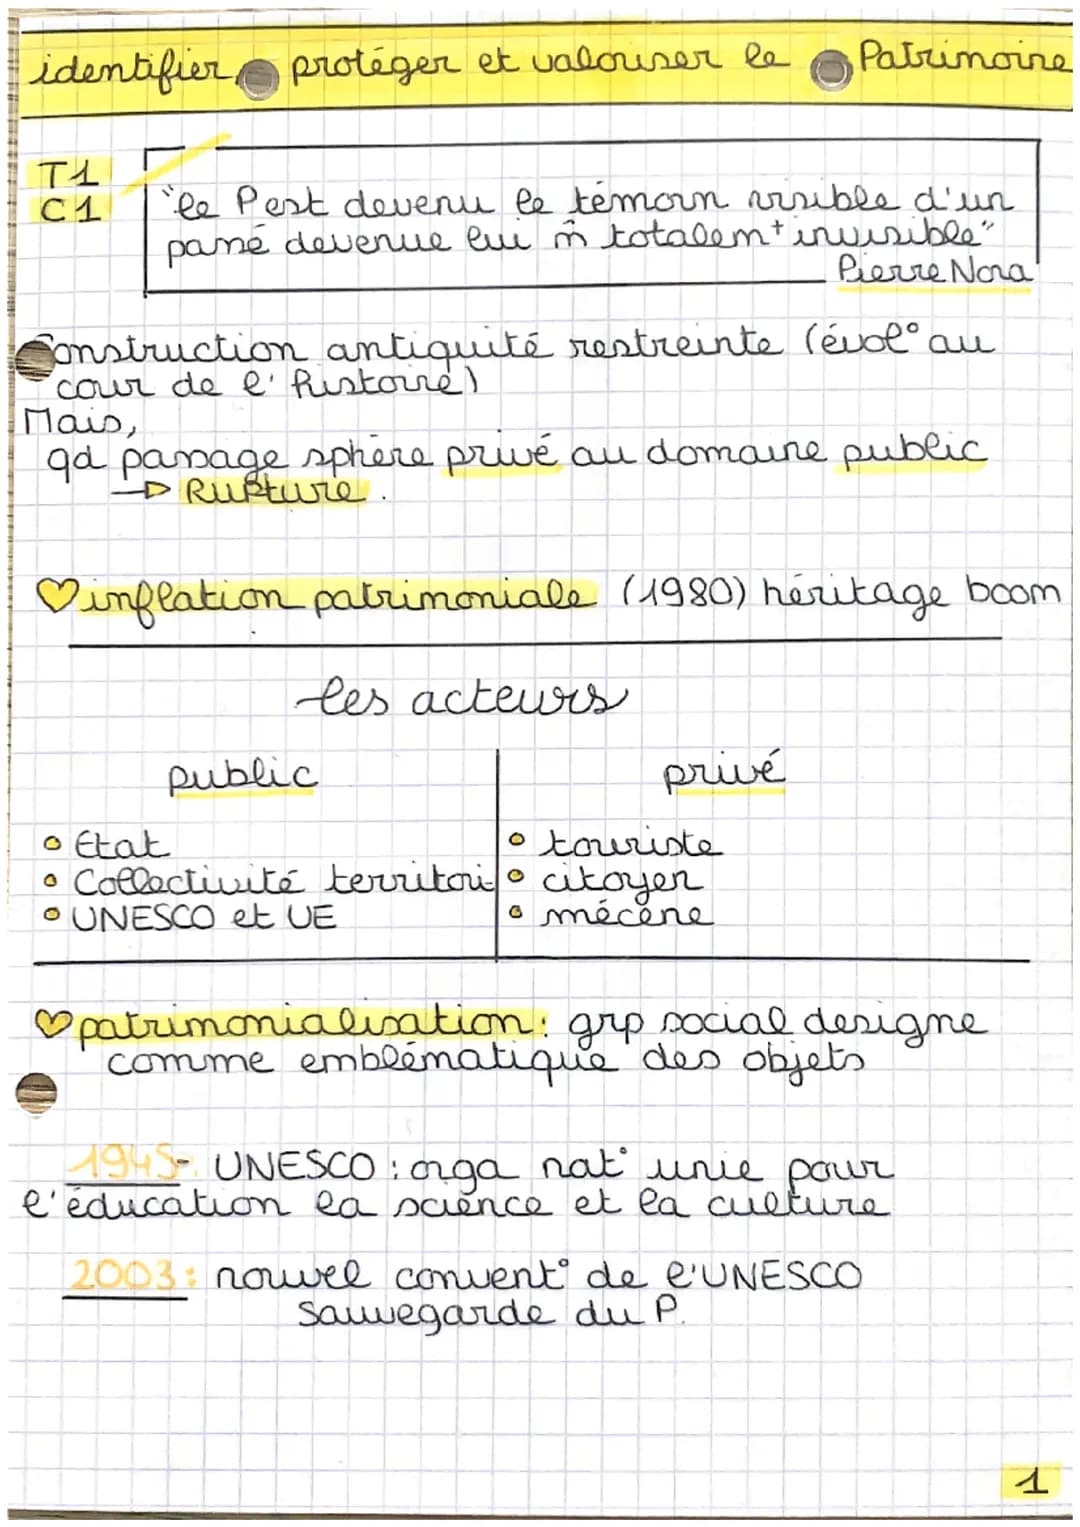 identifier, protéger et valoriser le Patrimoine
T1
C1
"le P est devenu le témoin visible d'un
passé devenue lui m̂ totalem+ invisible"
Pierre Nora
Construction antiquité restreinte (évol° au
cour de l'histoire)
Mais,
qd passage sphère privé au domaine public
→ Rupture.
♡ inflation patrimoniale (1980) héritage boom
les acteurs
public
privé
• Etat
• Collectivité territori
• UNESCO et UE
• touriste
• citoyen
• mécène
♡ patrimonialisation: grp social designe
comme emblématique des objets
1945-. UNESCO : orga nat° unie pour
l'éducation la science et la culture
2003: nouvel convent° de l'UNESCO
Sauvegarde du P.
1